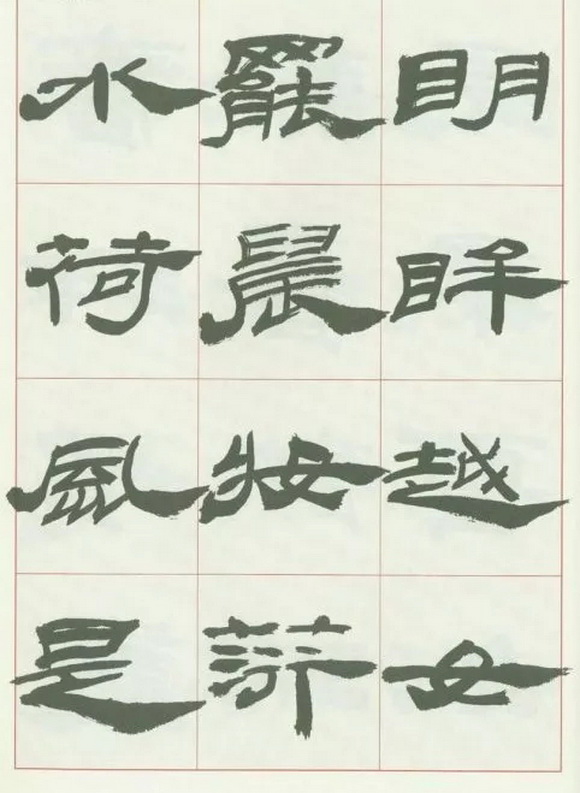 明眸越女
罷晨妝荇
水荷風是